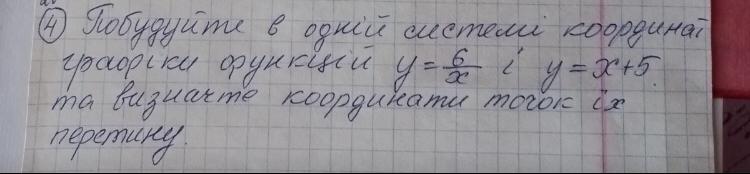 ④ Побудуйте в одній системі координат
графіки функцій y = 6/x і y = x+5
та визначте координати точок їх
перетину.